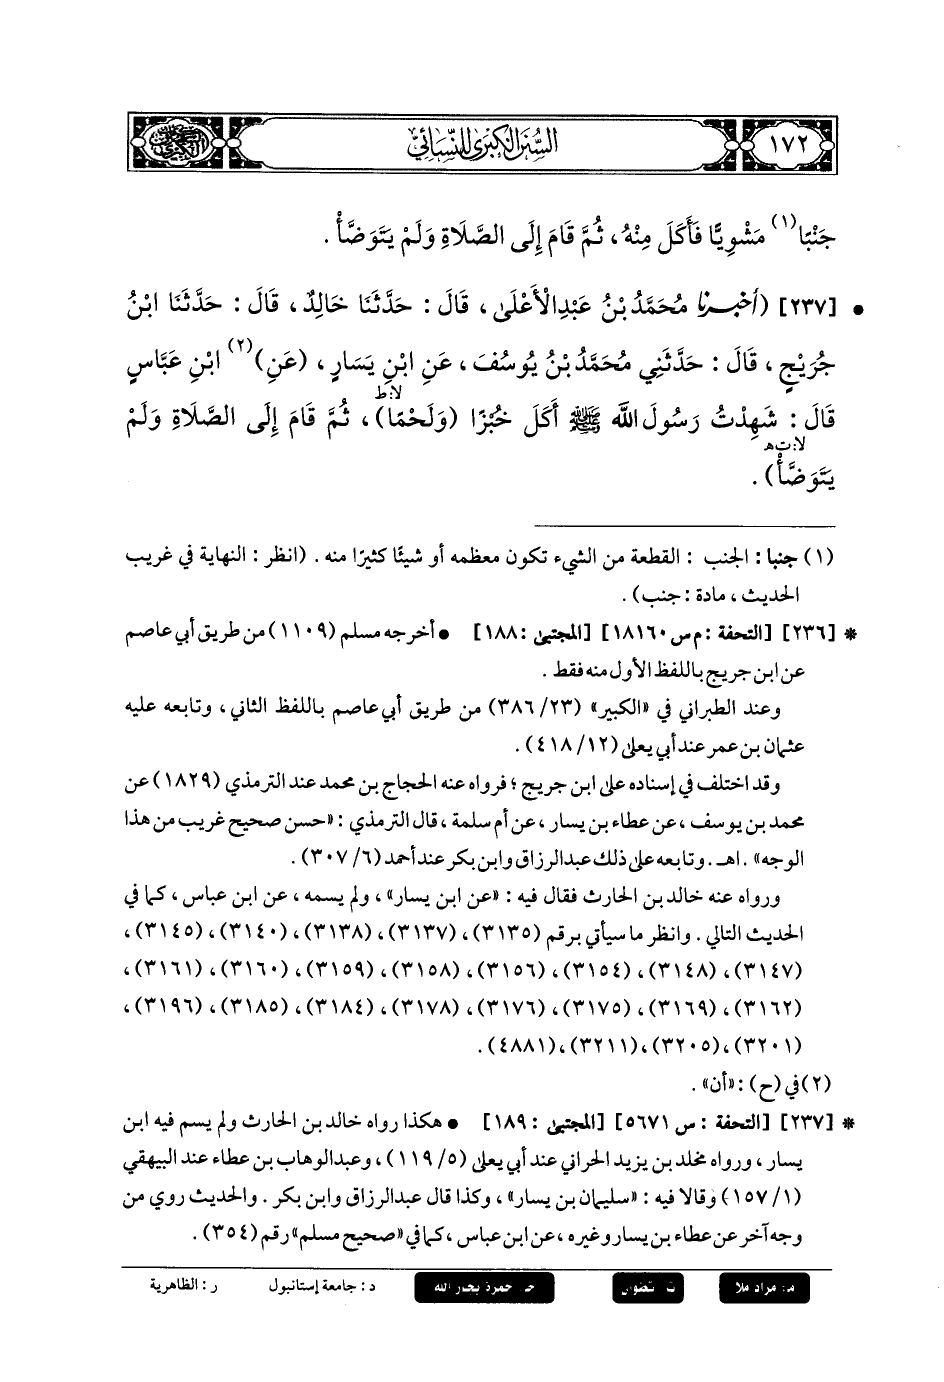 ١٧٢
السنن الكبرى للنسائي
جَنْبًا(١) مَشْوِيًّا فَأَكَلَ مِنْهُ، ثُمَّ قَامَ إِلَى الصَّلَاةِ وَلَمْ يَتَوَضَّأْ.
• [٢٣٧] (أَخْبَرنا مُحَمَّدُ بْنُ عَبْدِ الْأَعْلَى، قَالَ: حَدَّثَنَا خَالِدٌ، قَالَ: حَدَّثَنَا ابْنُ
جُرَيْجٍ، قَالَ: حَدَّثَنِي مُحَمَّدُ بْنُ يُوسُفَ، عَنِ ابْنِ يَسَارٍ، (عَنِ)(٢) ابْنِ عَبَّاسٍ
لا: ط
قَالَ: شَهِدْتُ رَسُولَ اللَّه ﷺ أَكَلَ خُبْزًا (وَلَحْمًا)، ثُمَّ قَامَ إِلَى الصَّلَاةِ وَلَمْ
لا: ت هـ
يَتَوَضَّأْ).
(١) جنبا: الجنب: القطعة من الشيء تكون معظمه أو شيئًا كثيرًا منه. (انظر: النهاية في غريب
الحديث، مادة: جنب).
* [٢٣٦] [التحفة: م س ١٨١٦٠] [المجتبى: ١٨٨] • أخرجه مسلم (١١٠٩) من طريق أبي عاصم
عن ابن جريج باللفظ الأول منه فقط.
وعند الطبراني في «الكبير» (٢٣/ ٣٨٦) من طريق أبي عاصم باللفظ الثاني، وتابعه عليه
عثمان بن عمر عند أبي يعلى (١٢/ ٤١٨).
وقد اختلف في إسناده على ابن جريج؛ فرواه عنه الحجاج بن محمد عند الترمذي (١٨٢٩) عن
محمد بن يوسف، عن عطاء بن يسار، عن أم سلمة، قال الترمذي: «حسن صحيح غريب من هذا
الوجه». اهـ. وتابعه على ذلك عبدالرزاق وابن بكر عند أحمد (٦/ ٣٠٧).
ورواه عنه خالد بن الحارث فقال فيه: «عن ابن يسار»، ولم يسمه، عن ابن عباس، كما في
الحديث التالي. وانظر ما سيأتي برقم (٣١٣٥)، (٣١٣٧)، (٣١٣٨)، (٣١٤٠)، (٣١٤٥)،
(٣١٤٧)، (٣١٤٨)، (٣١٥٤)، (٣١٥٦)، (٣١٥٨)، (٣١٥٩)، (٣١٦٠)، (٣١٦١)،
(٣١٦٢)، (٣١٦٩)، (٣١٧٥)، (٣١٧٦)، (٣١٧٨)، (٣١٨٤)، (٣١٨٥)، (٣١٩٦)،
(٣٢٠١)، (٣٢٠٥)، (٣٢١١)، (٤٨٨١).
(٢) في (ح): «أن».
* [٢٣٧] [التحفة: س ٥٦٧١] [المجتبى: ١٨٩] • هكذا رواه خالد بن الحارث ولم يسم فيه ابن
يسار، ورواه مخلد بن يزيد الحراني عند أبي يعلى (٥/ ١١٩)، وعبدالوهاب بن عطاء عند البيهقي
(١/ ١٥٧) وقالا فيه: «سليمان بن يسار»، وكذا قال عبدالرزاق وابن بكر. والحديث روي من
وجه آخر عن عطاء بن يسار وغيره، عن ابن عباس، كما في «صحيح مسلم» رقم (٣٥٤).
م: مراد ملا ت: تطوان حـ: حمزة بجار الله د: جامعة إستانبول ر: الظاهرية